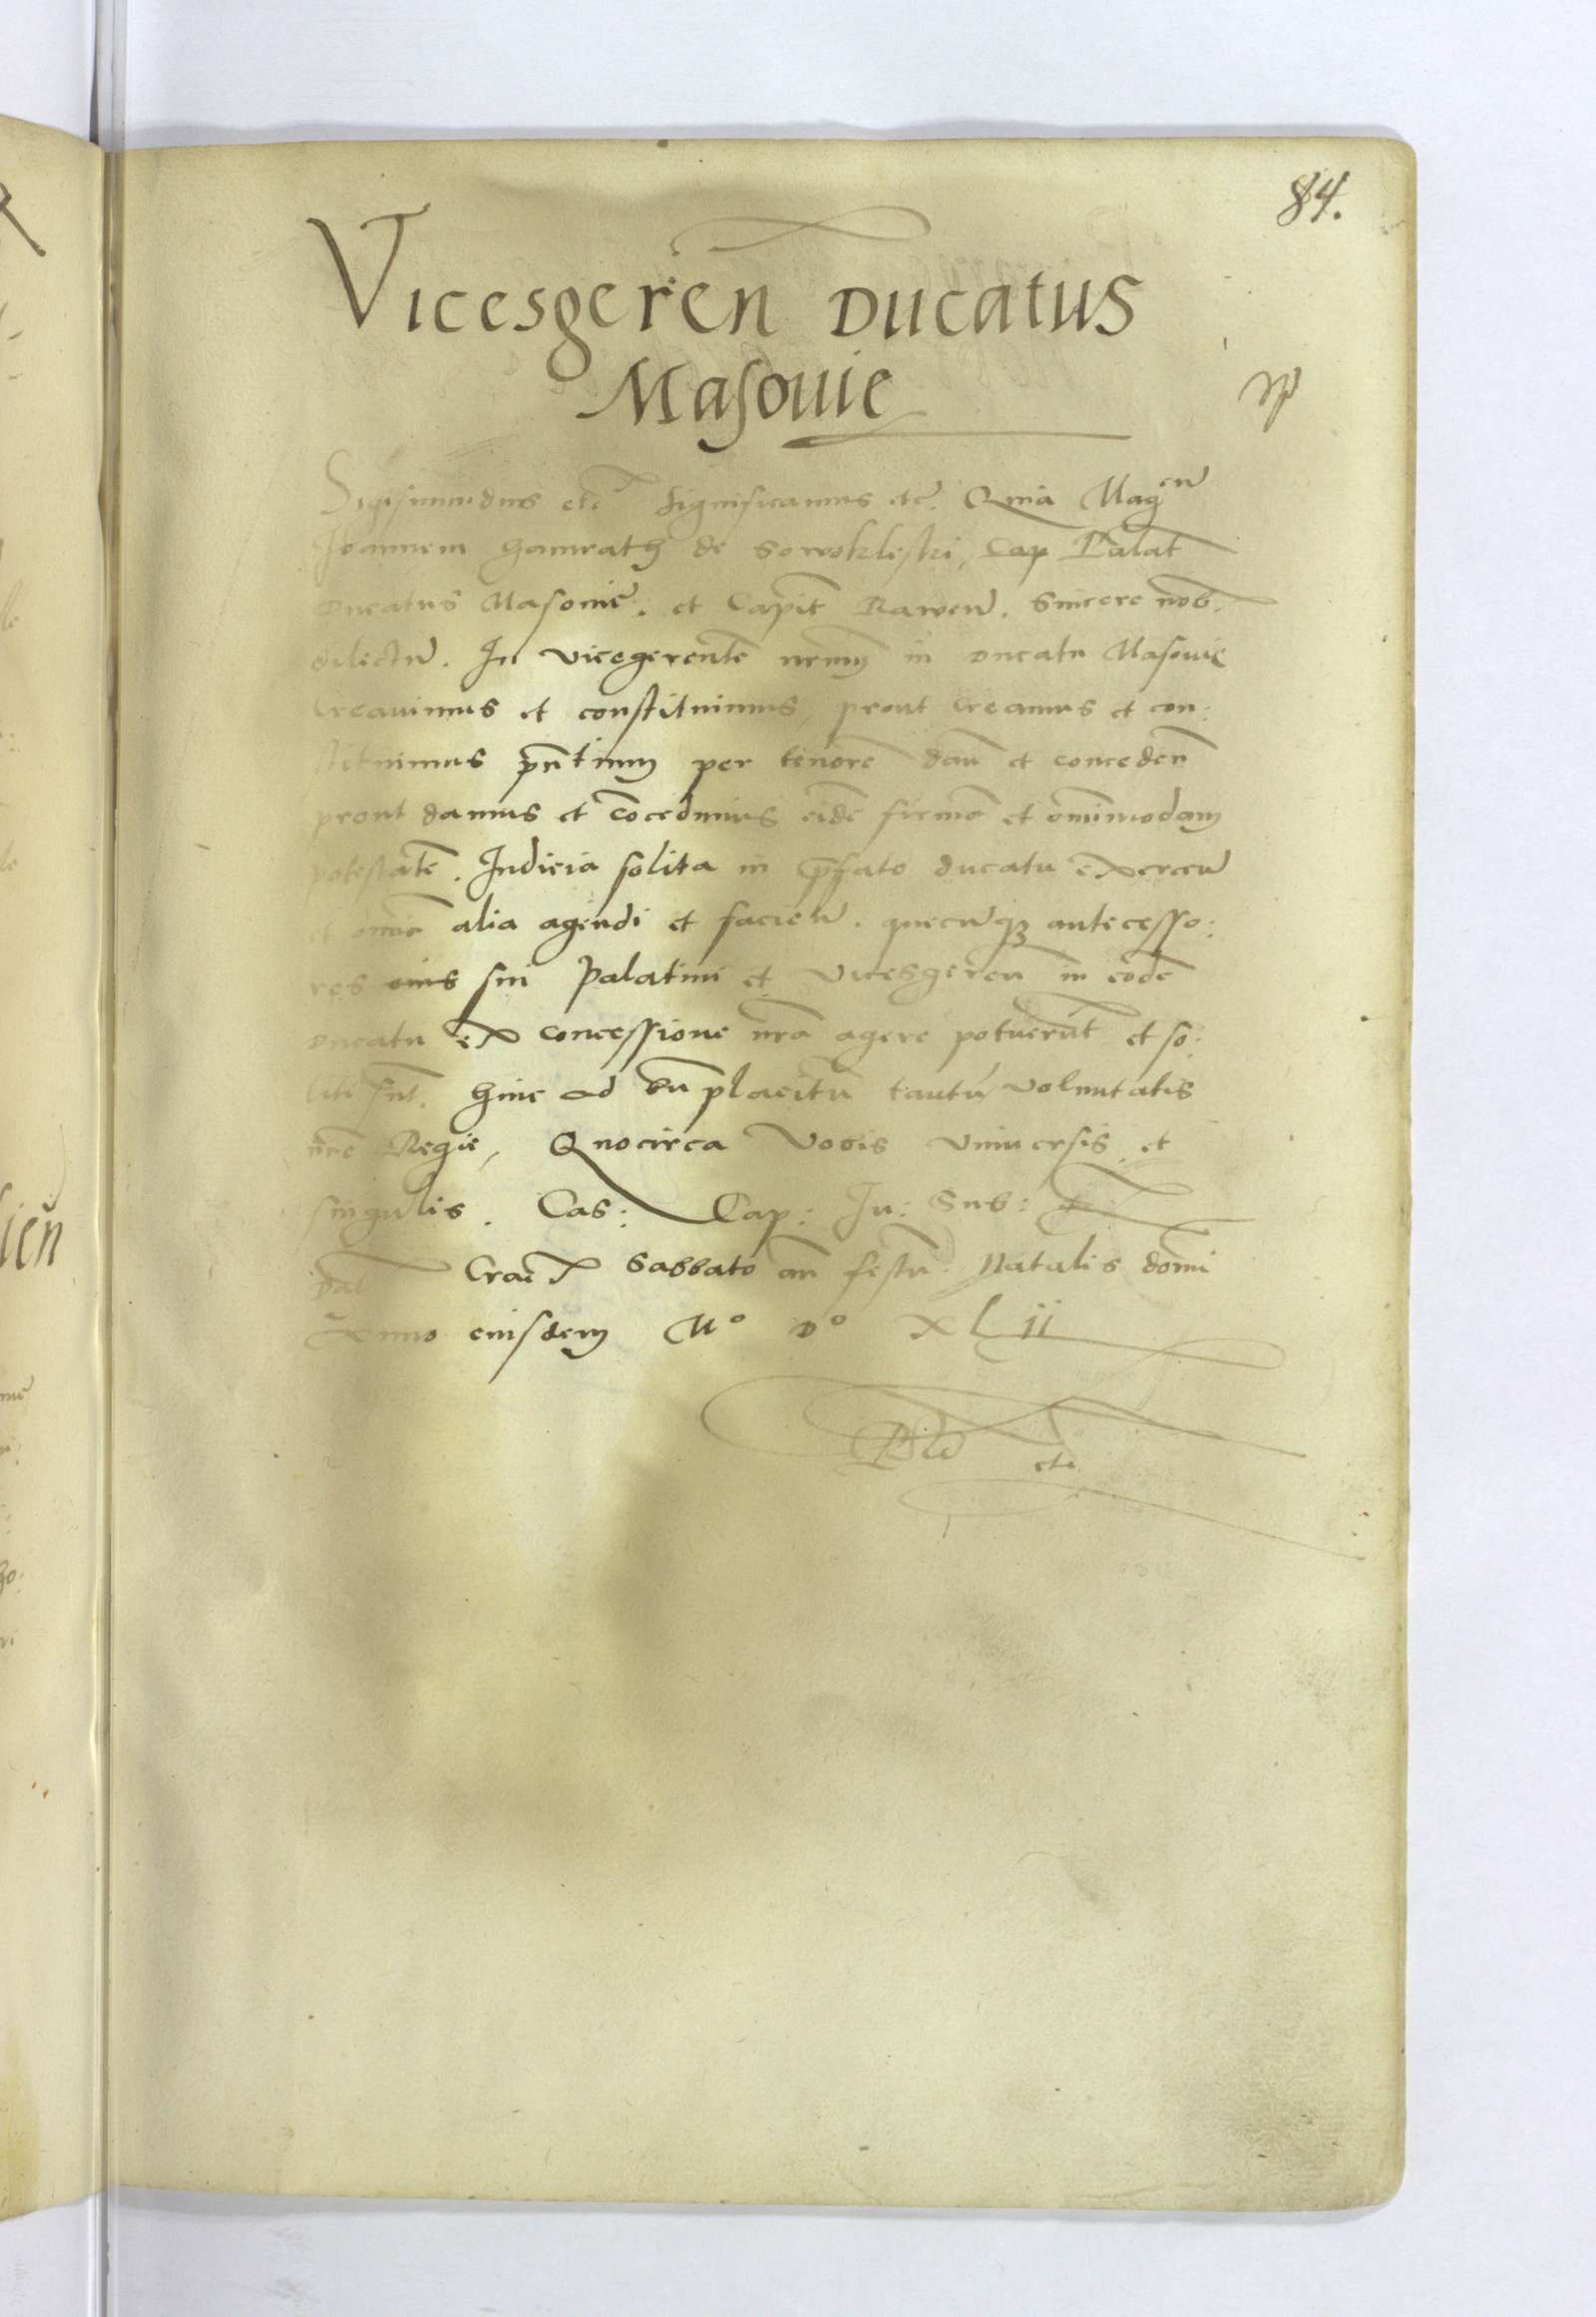 84.
Vicesgeren̄ Ducatus
Masouie
Sigismundus etc̄ significamus etc̄. Quia Magcū
Joannem Gamrath de Sowokleski, Cap Palat
Ducatus Masouie. et Capit̄ Rawen̄. sincere nob.
dilectū. In vicegerentē nr̄um in Ducatu Masouie
Creauimus et constituimus, prout Creamus et con:
stituimus pn̄tium per tenorē dan̄ et conceden̄
prout damus et cōcedimus eidē firmā et om̄imodam
potestatē. Judicia solita in p̄fato ducatu exercen̄
et om̄ia alia agendi et facien̄. quecūqꝫ antecesso:
res eius sui Palatini et vicesgeren̄ in eodē
Ducatu ex concessione nr̄a agere potuerūt et so:
liti sūt. Hinc ad bn̄placitū tantū voluntatis
nr̄e Regie, Quocirca Vobis Vniuersis et
singulis. Cas: Cap: Ju: Sub:
Dat Crac̄ Sabbato an̄ festū Natalis domi
Anno eiusdem Mº Dº XLii
etc